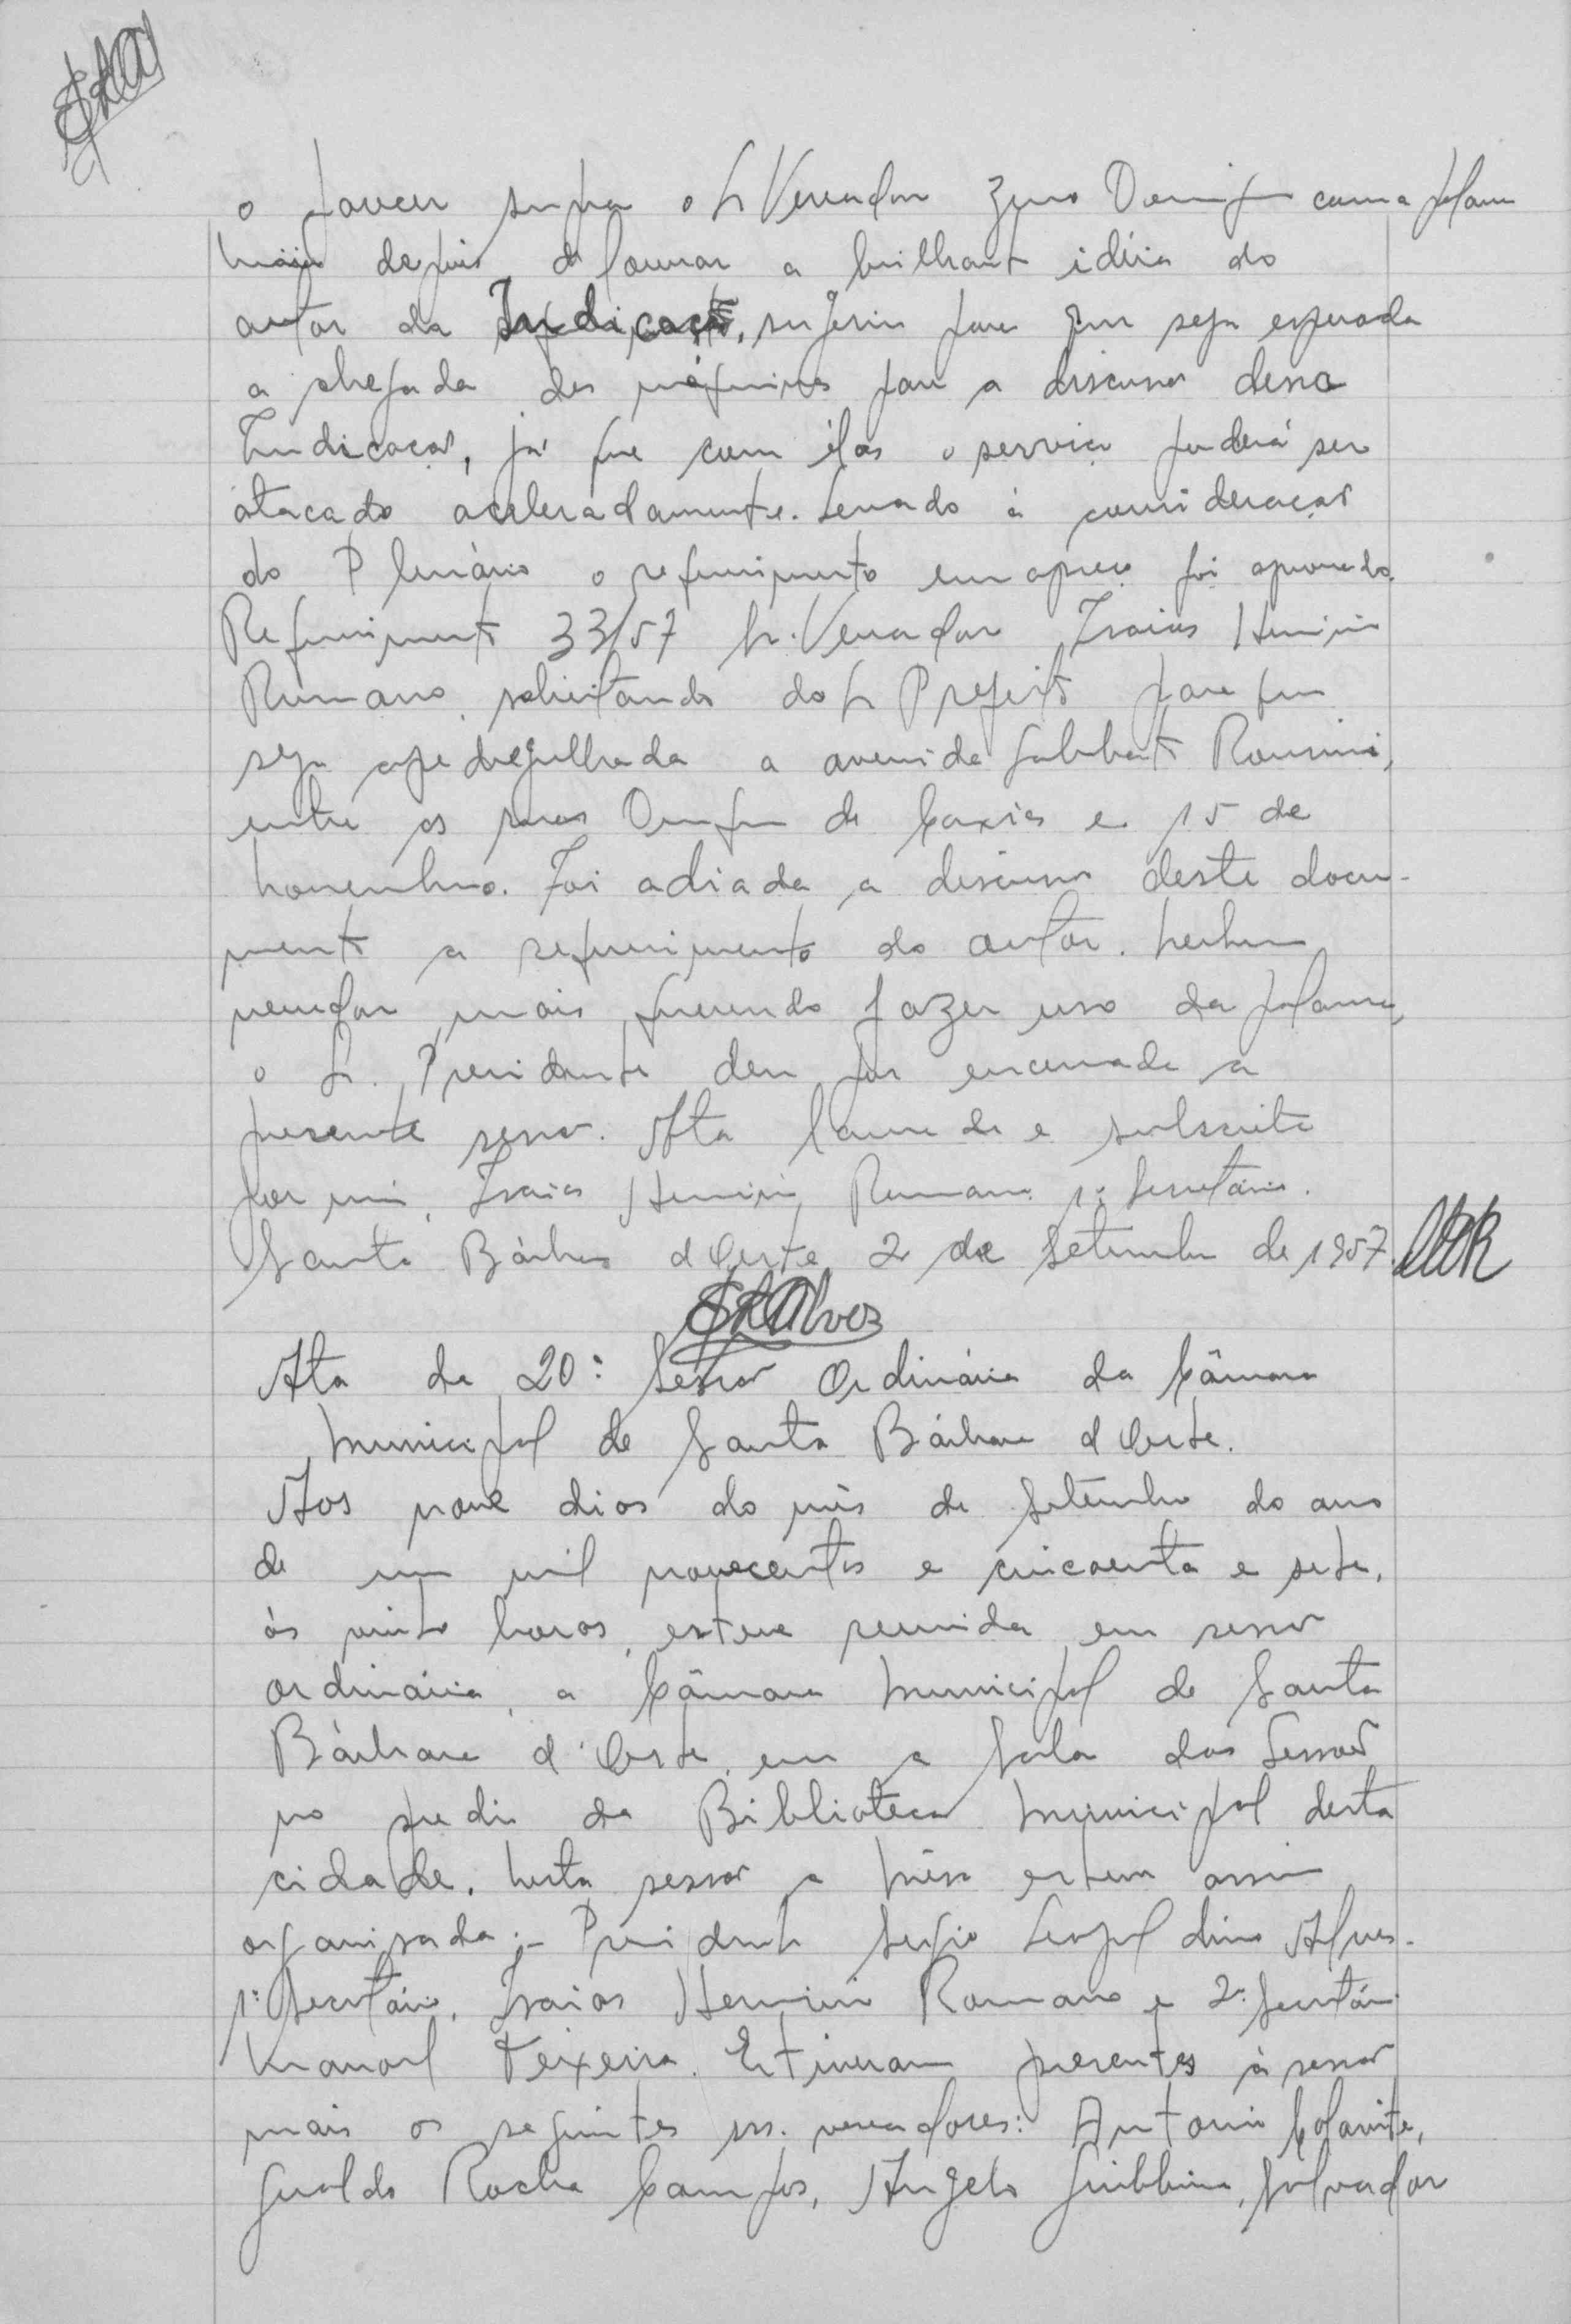 o parecer supra o Sr Vereador Zeno Domingos com a palavra
mais depois de louvar a brilhante idéia do
autor da Indicação, sugeriu para que seja esperada
a chegada das máquinas para a discussão dessa
Indicação, já que com elas o serviço poderá ser
atacado aceleradamente. Levado à consideração
do Plenário o requerimento em apreço foi aprovado.
Requerimento 33/57 Sr. Vereador Isaias Herminio
Romano, solicitando do Sr Prefeito para que
seja apedregulhada a avenida Sabbato Ronsini,
entre as ruas Duque de Caxias e 15 de
Novembro. Foi adiada a discussão deste docu-
mento a requerimento do autor. Nenhum
vereador mais querendo fazer uso da palavra,
o Sr. Presidente deu por encerrada a
presente sessão. Ata lavrada e subscrita
por mim, Isaias Herminio Romano 1º Secretário.
Santa Bárbara d'Oeste 2 de Setembro de 1957.
SLAlves
Ata da 20ª Sessão Ordinária da Câmara
Municipal de Santa Bárbara d'Oeste.
Aos nove dias do mês de Setembro do ano
de um mil novecentos e cincoenta e sete,
às vinte horas, esteve reunida em sessão
ordinária, a Câmara Municipal de Santa
Bárbara d'Oeste, em a Sala das Sessões
no predio da Biblioteca Municipal desta
cidade. Nesta sessão a Mêsa esteve assim
organisada:- Presidente Sergio Leopoldino Alves.
1º Secretário, Isaias Herminio Romano e 2º Secretário
Manoel Teixeira. Estiveram presentes à sessão
mais os seguintes srs. vereadores: Antonio Colavite,
Geraldo Rocha Campos, Angelo Giubbina, Salvador